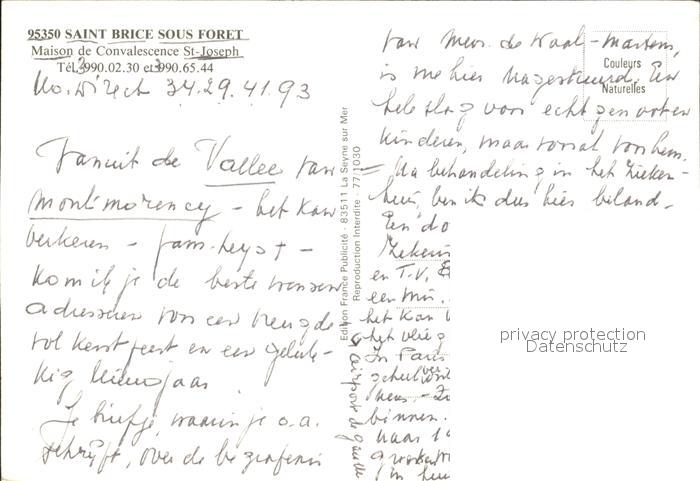 95350 SAINT BRICE SOUS FORET
Maison de Convalescence St-Joseph
Tél. 3990.02.30 et 3990.65.44
No. Direct 34.29.41.93
Vanuit de Vallee van
Montmorency - het kan
verkeren -
kom ik je de beste wensen
adresseren voor een vreugde-
vol kerstfeest en een geluk-
kig Nieuwjaar
Je briefje, waarin je o.a.
schrijft, over de begrafenis
Edition France Publicité - 83511 La Seyne sur Mer
Reproduction Interdite - 77/1030
airport de Gaulle
Couleurs
Naturelles
van Mevr. de Waal-Martens,
is me hier nagestuurd. Een
hele slag voor echtgenoot en
kinderen, maar vooral voor hem.
Na behandeling in het zieken-
huis, ben ik dus hier beland.
En do
en T.V.
een
het kan
het vlieg
In Paris
binnen.
naar
in
privacy protection
Datenschutz